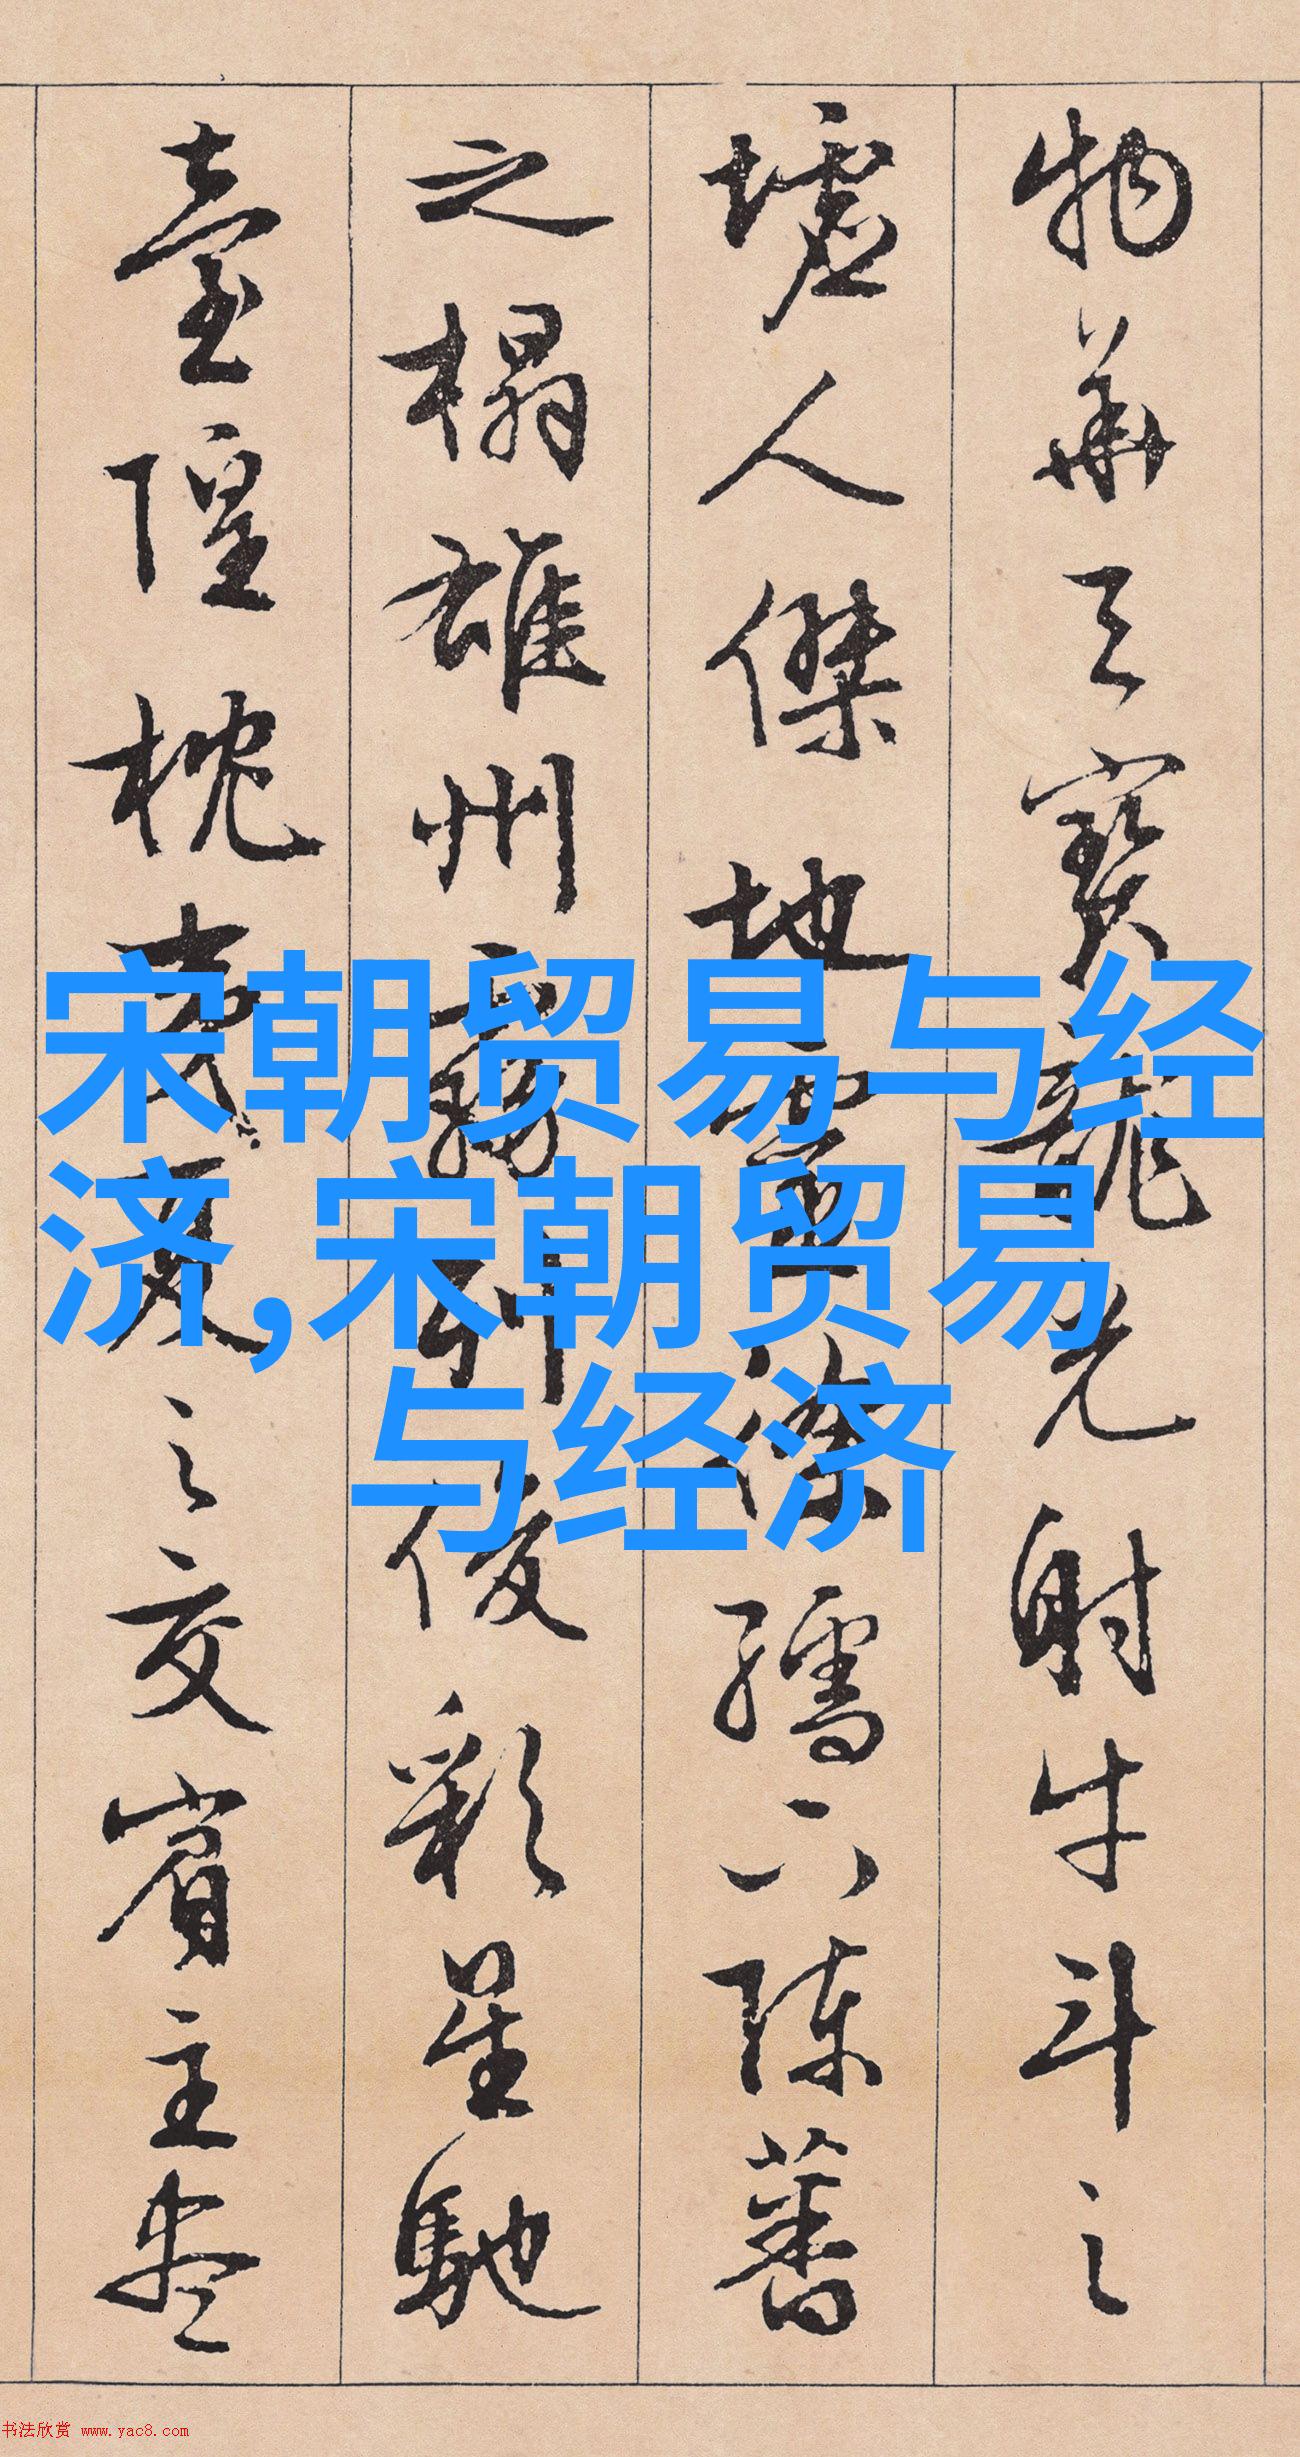 物華天寶龍光射牛斗之
墟人傑地靈徐孺下陳蕃
之榻雄州霧列俊彩星馳
臺隍枕夷夏之交賓主盡
宋朝贸易与经
济,宋朝贸易
与经济
书法欣赏 www.yac8.com